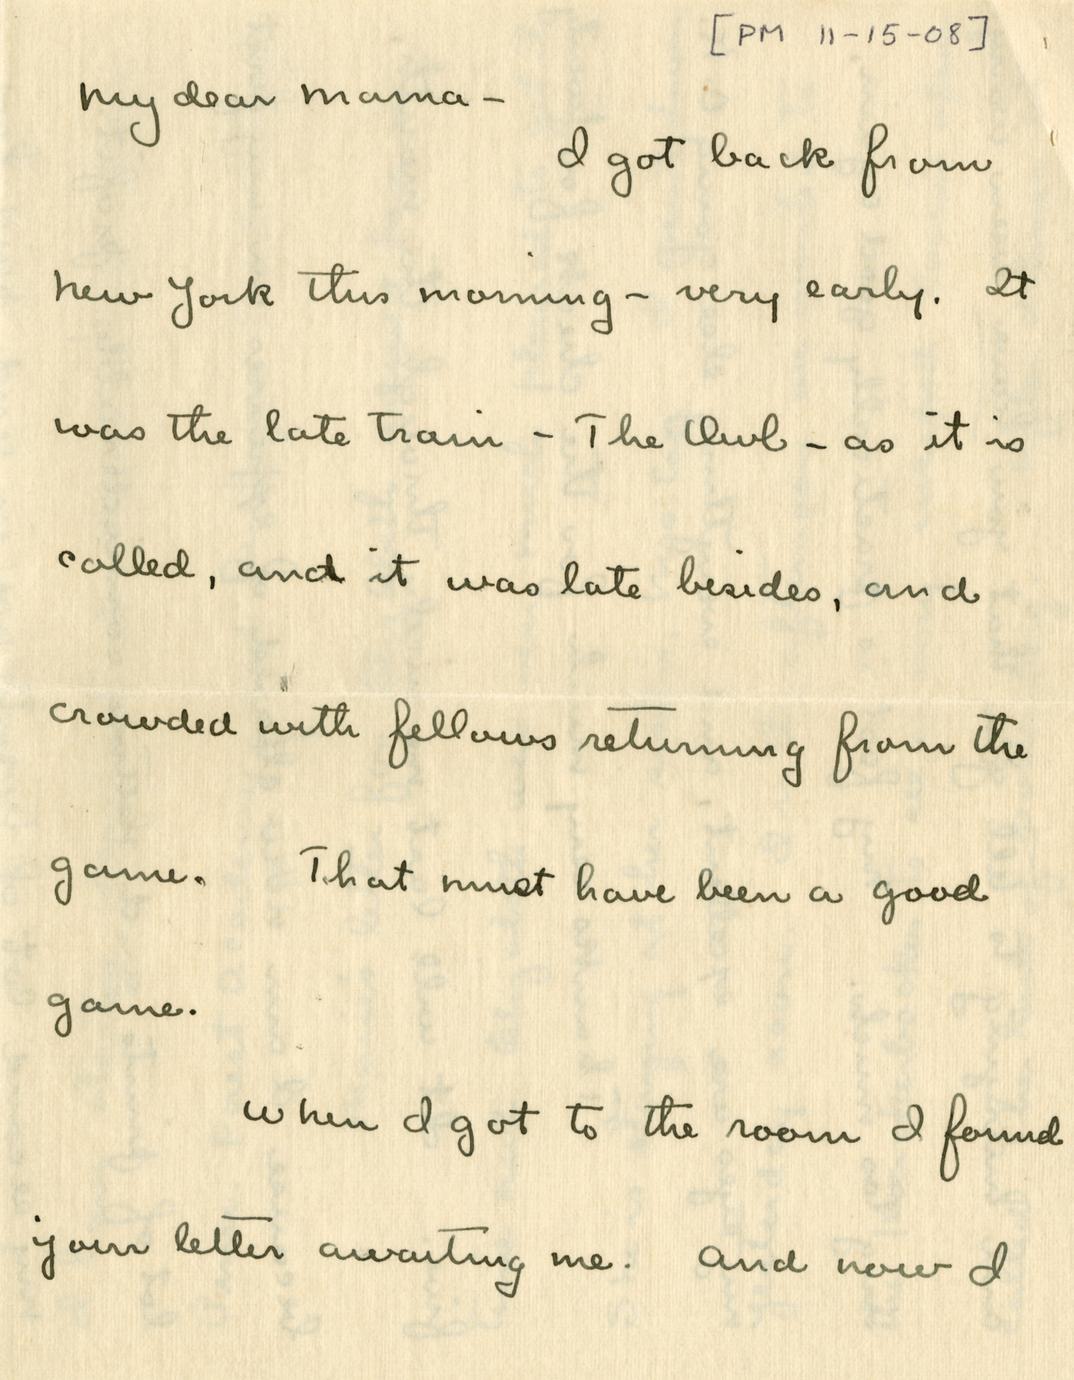 [PM 11-15-08]
My dear Mama –
I got back from
New York this morning – very early. It
was the late train – The Owl – as it is
called, and it was late besides, and
crowded with fellows returning from the
game. That must have been a good
game.
When I got to the room I found
your letter awaiting me. And now I